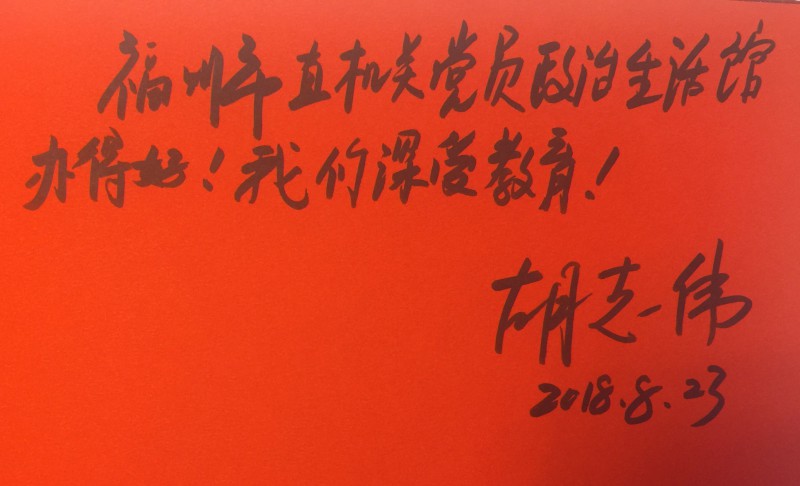 福州市直机关党员政治生活馆
办得好！我们深受教育！
胡志伟
2018.8.23